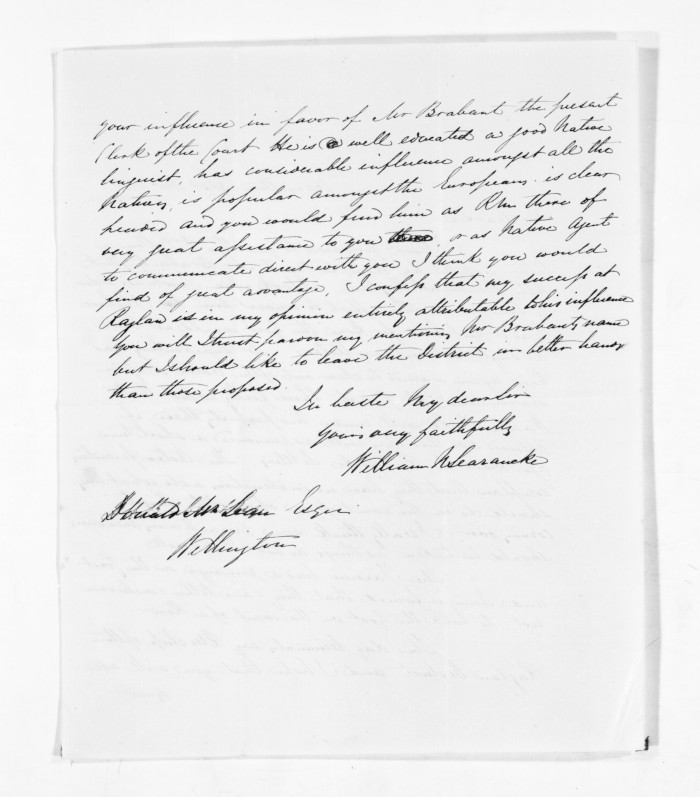 your influence in favor of Mr Brabant the present
Clerk of the Court He is well educated a good Native
linguist, has considerable influence amongst all the
Natives, is popular amongst the Europeans. is clear
headed and you would find him as R.M there of
very great assistance to you, or as Native Agent
to communicate direct with you I think you would
find of great advantage, I confess that my success at
Raglan is in my opinion entirely attributable to his influence
you will I trust pardon my mentioning Mr Brabants name
but I should like to leave the District in better hands
than those proposed.
In haste My dear Sir
Yours very faithfully
William N Searancke
Donald McLean Esqre
Wellington